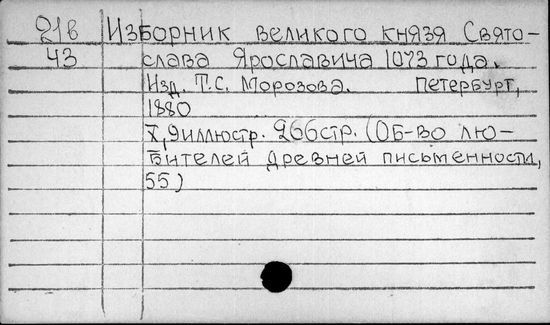 21в Изборник великого князя Свято-
43 слава Ярославича 1073 года.
Изд. Т.С. Морозова. Петербург,
1880
X, 9 иллюстр. 266 стр. (Об-во лю-
бителей древней письменности,
55)